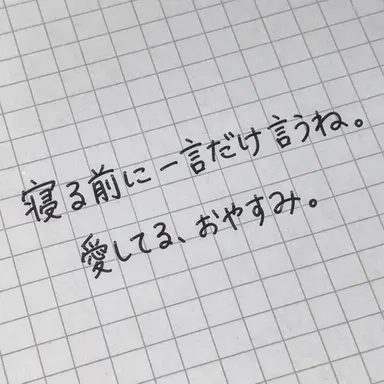 寝る前に一言だけ言うね。
愛してる、おやすみ。